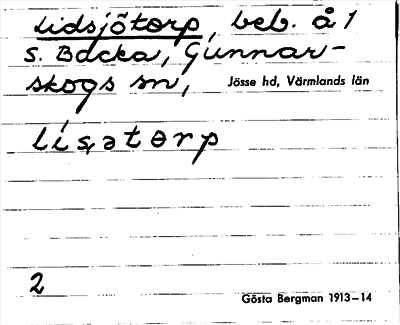 Lidsjötorp, beb. å 1
S. Backa, Gunnar-
skogs sn, Jösse hd, Värmlands län
li̍sₔətɵrp
2
Gösta Bergman 1913–14